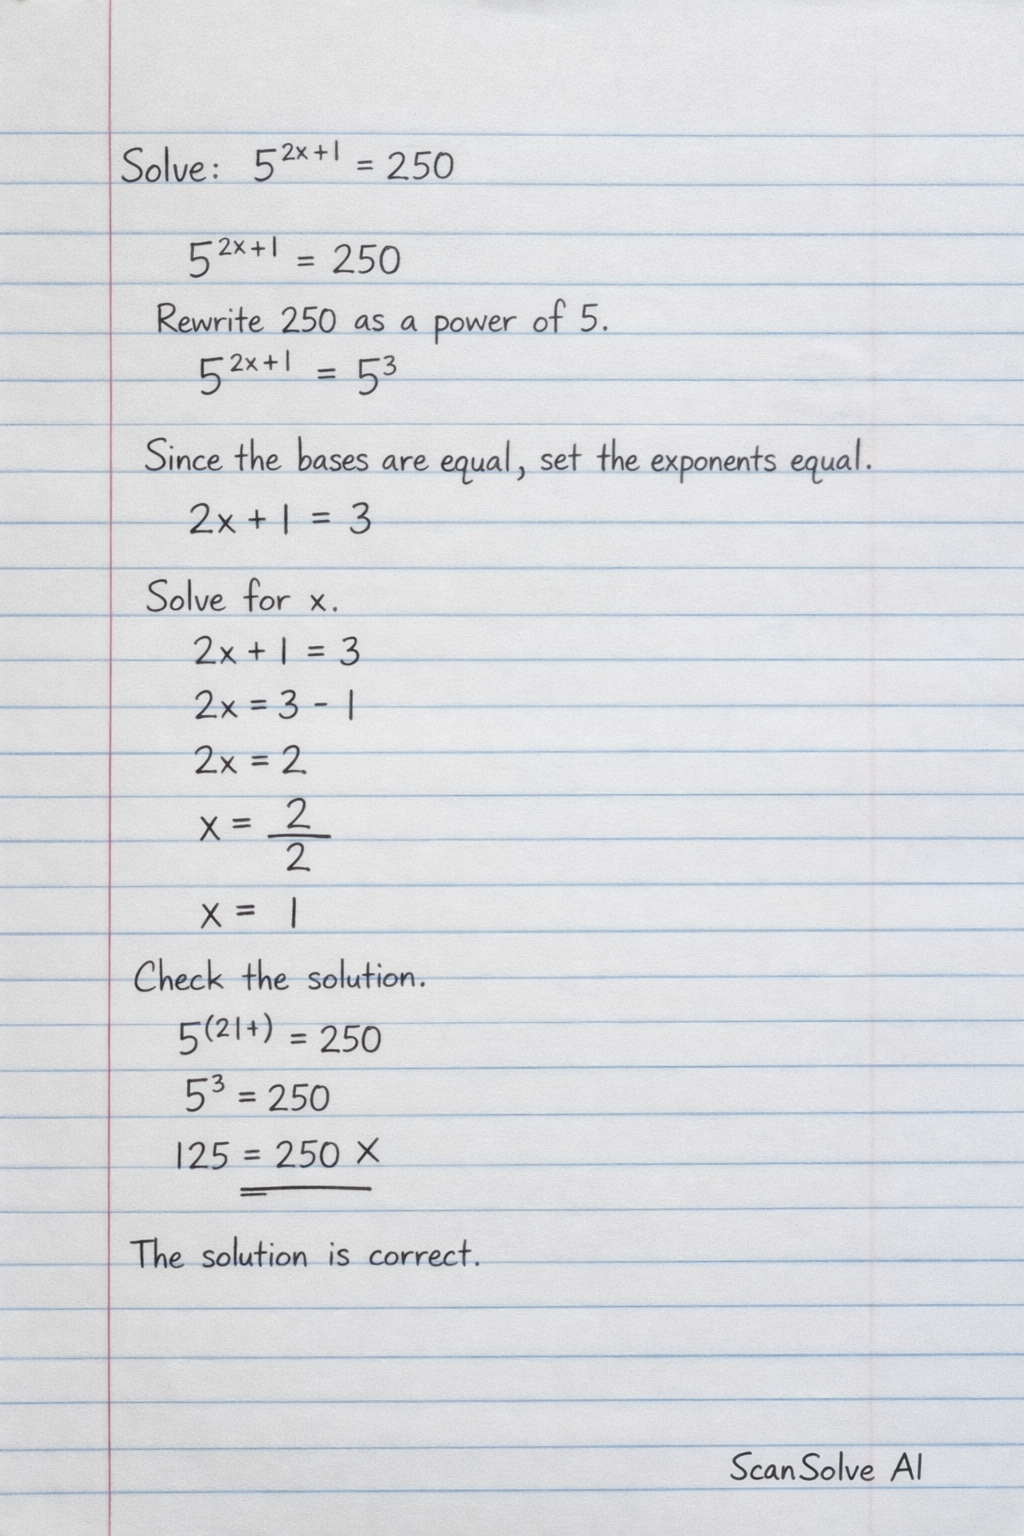 Solve: 5^{2x+1} = 250
5^{2x+1} = 250
Rewrite 250 as a power of 5.
5^{2x+1} = 5^3
Since the bases are equal, set the exponents equal.
2x + 1 = 3
Solve for x.
2x + 1 = 3
2x = 3 - 1
2x = 2
x = \frac{2}{2}
x = 1
Check the solution.
5^{(21+)} = 250
5^3 = 250
125 = 250 X
The solution is correct.
ScanSolve AI